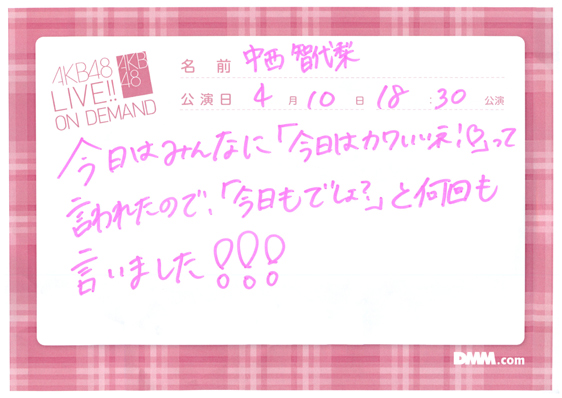 AKB48
LIVE!!
ON DEMAND
AKB
48
名前 中西 智代梨
公演日 4月10日 18:30公演
今日はみんなに「今日はカワいいネ!♡」って
言われたので、「今日もでしょ?」と何回も
言いました!!!
DMM.com